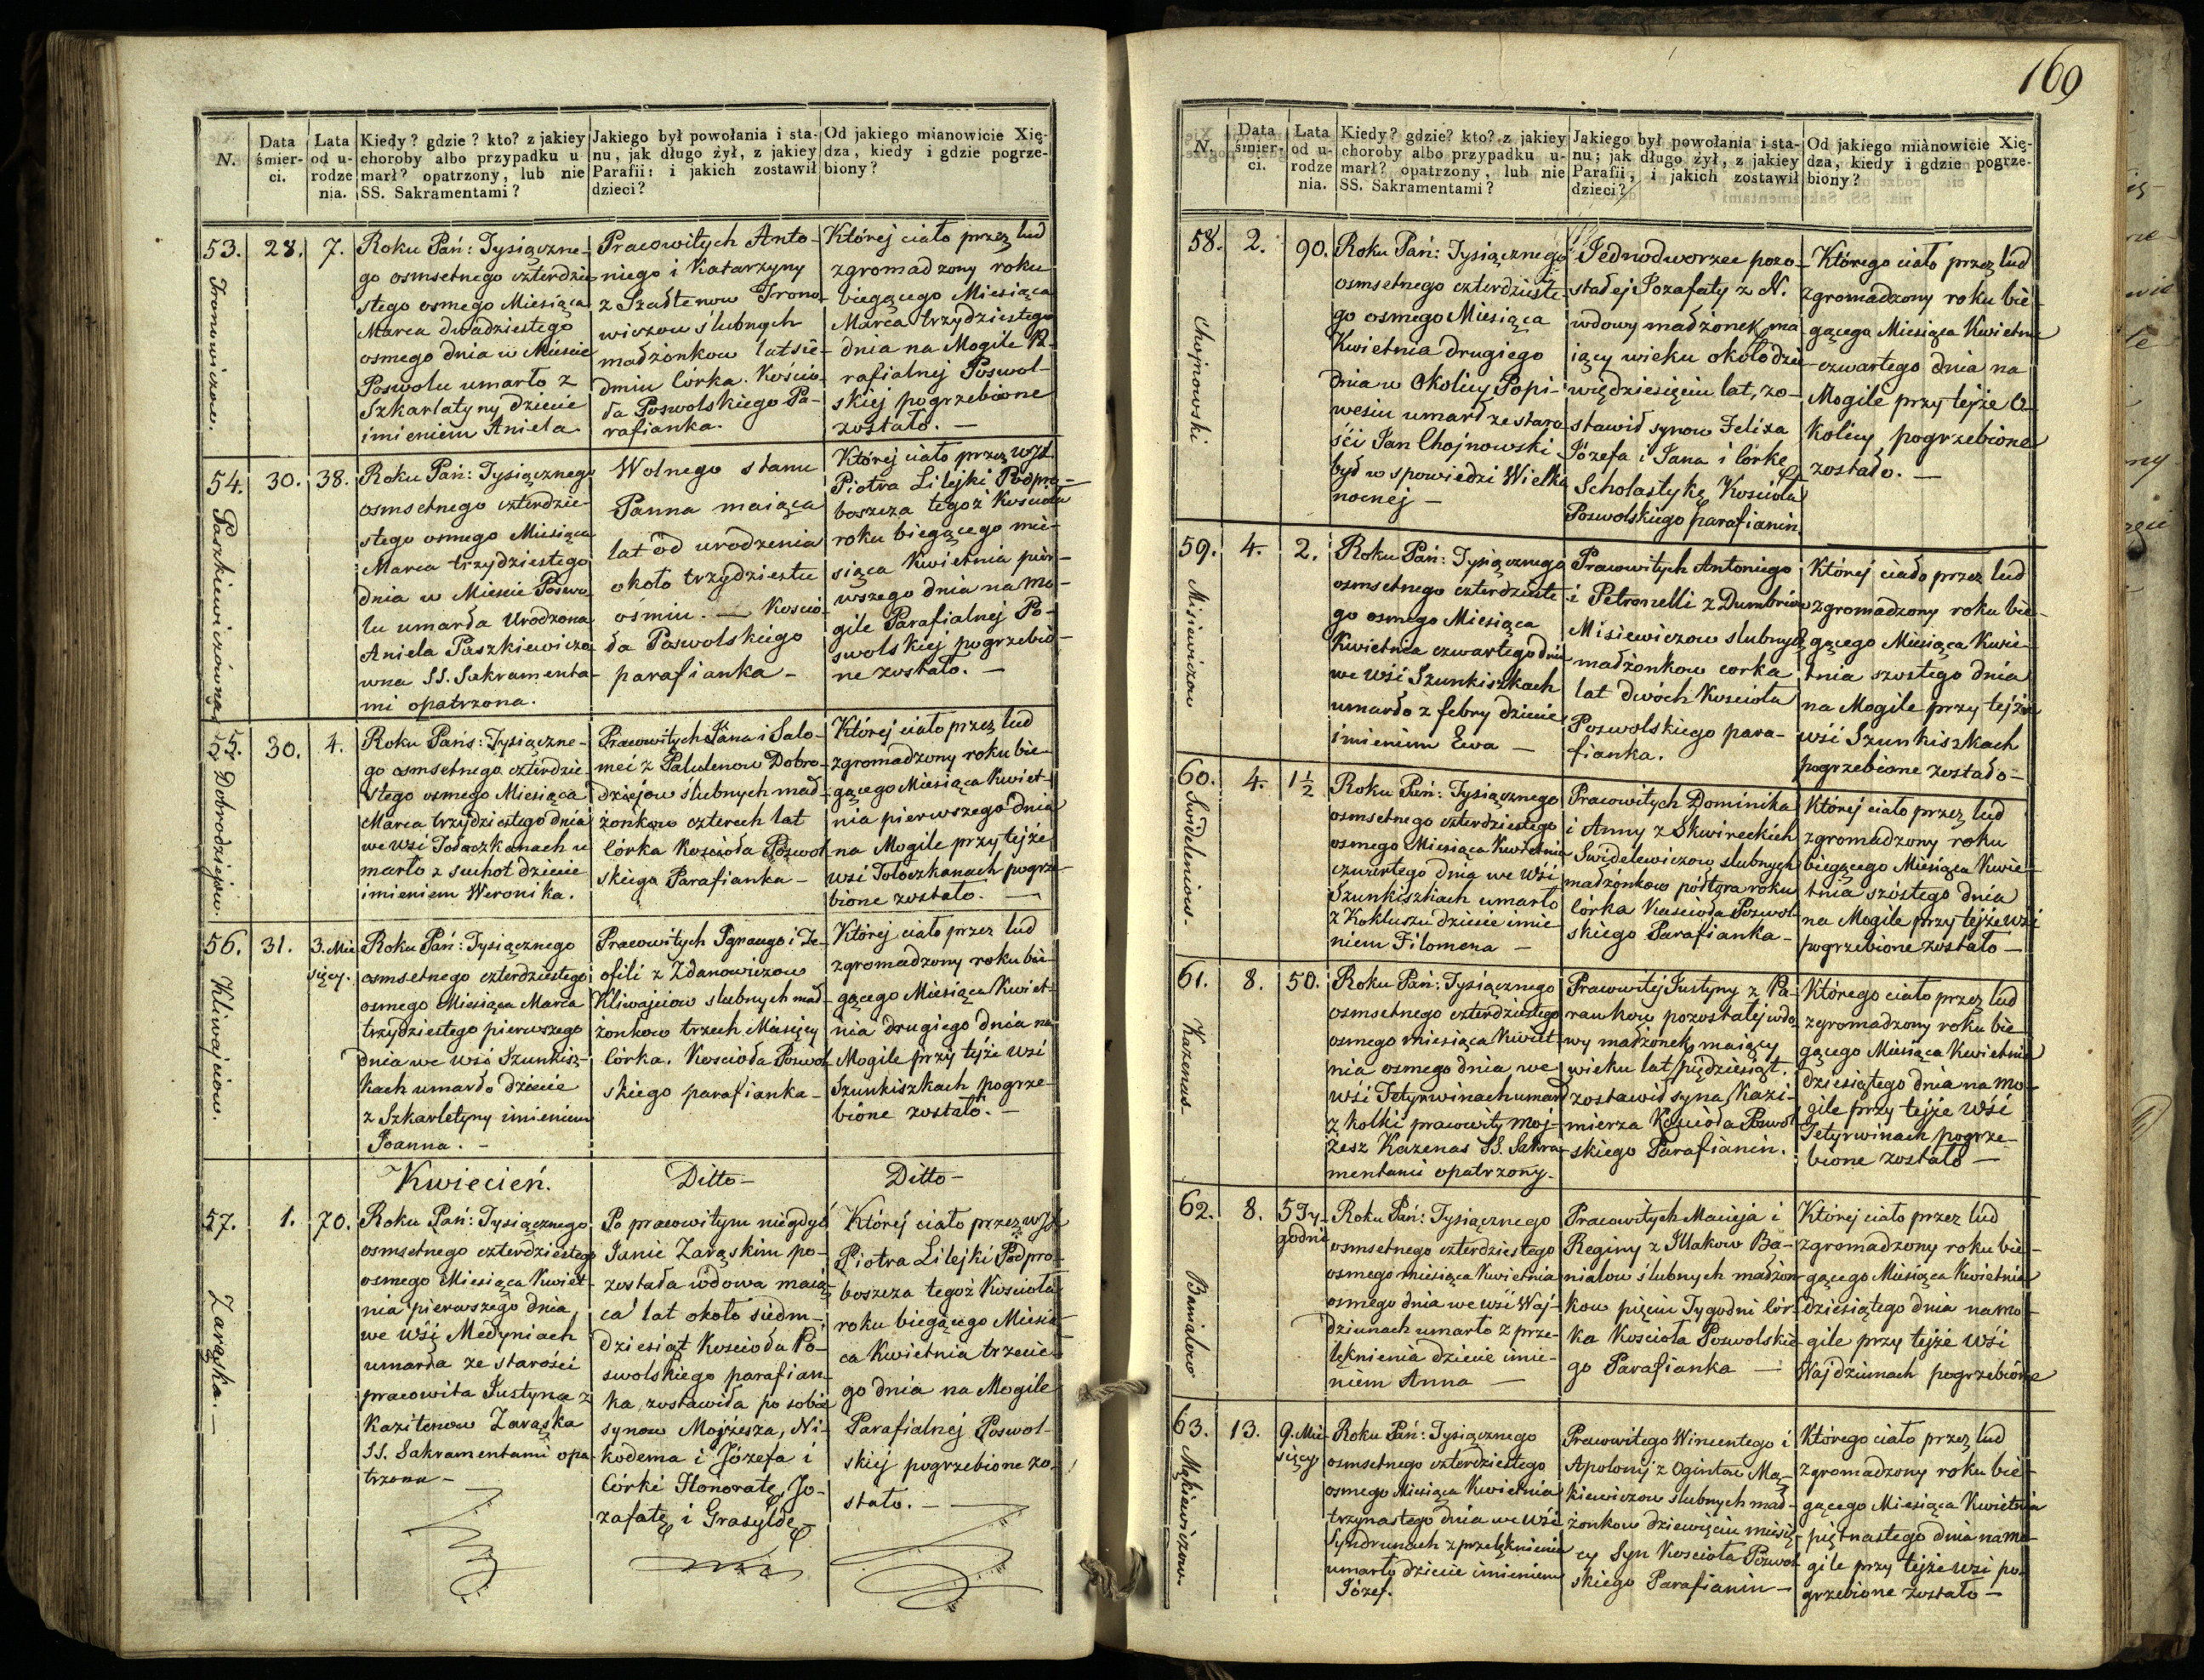 N.
Data
śmier-
ci.
Lata
od u-
rodze
nia.
Kiedy? gdzie? kto? z jakiey
choroby albo przypadku u
marł? opatrzony, lub nie
SS. Sakramentami?
Jakiego był powołania i sta-
nu, jak długo żył, z jakiey
Parafii: i jakich zostawił
dzieci?
Od jakiego mianowicie Xię-
dza, kiedy i gdzie pogrze-
biony?
53.
Tronowiczow.
28.
7.
Roku Pań: Tysiączne-
go osmsetnego czterdzie
stego osmego Miesiąca
Marca dwadziestego
osmego dnia w Mieście
Poswolu umarło z
Szkarlatyny dziecie
imieniem Aniela.
Pracowitych Anto-
niego i Katarzyny
z Szałtenow Trono-
wiczow ślubnych
małżonkow lat sie-
dmiu Córka. Kościo-
ła Poswolskiego Pa-
rafianka.
Której ciało przez lud
zgromadzony roku
biegącego Miesiąca
Marca trzydziestego
dnia na Mogile Pa-
rafialnej Poswol-
skiej pogrzebione
zostało. —
54.
Paszkiewiczówna
30.
38.
Roku Pań: Tysiącznego
osmsetnego czterdzie-
stego osmego Miesiąca
Marca trzydziestego
dnia w Mieście Poswo
lu umarła Urodzona
Aniela Paszkiewiczo
wna SS. Sakramenta-
mi opatrzona.
Wolnego stanu
Panna maiąca
lat od urodzenia
około trzydziestu
osmiu. — Kościo-
ła Poswolskiego
parafianka -
Której ciało przez WJX
Piotra Lilejki Podpro-
boszcza tegoż Kościoła
roku biegącego mie-
siąca Kwietnia pier-
wszego dnia na Mo-
gile Parafialnej Po-
swolskiej pogrzebio-
ne zostało. —
55.
Dobrodziejow.
30.
4.
Roku Pańs: Tysiączne-
go osmsetnego czterdzie
stego osmego Miesiąca
Marca trzydziestego dnia
we wsi Tołoczkanach u
marło z suchot dziecie
imieniem Weronika.
Pracowitych Jana i Salo-
mei z Palulenow Dobro-
dziejow ślubnych mał-
żonkow czterech lat
Córka Kościoła Poswol
skiego Parafianka -
Której ciało przez lud
zgromadzony roku bie-
gącego Miesiąca Kwiet-
nia pierwszego dnia
na Mogile przy tejże
wsi Tołoczkanach pogrze-
bione zostało. —
56.
Kliwajciow.
31.
3. Mie
sięcy.
Roku Pań: Tysiącznego
osmsetnego czterdziestego
osmego Miesiąca Marca
trzydziestego pierwszego
dnia we wsi Szunkisz-
kach umarło dziecie
z Szkarletyny imieniem
Joanna. -
Pracowitych Ignacego i Te-
ofili z Zdanowiczow
Kliwajciow slubnych mał-
żonkow trzech Miesięcy
Córka. Kościoła Poswol
skiego parafianka -
Której ciało przez lud
zgromadzony roku bie-
gącego Miesiąca Kwiet-
nia drugiego dnia na
Mogile przy tejże wsi
Szunkiszkach pogrze-
bione zostało. —
Kwiecień.
Ditto -
Ditto -
57.
Zarąska. —
1.
70.
Roku Pań: Tysiącznego
osmsetnego czterdziestego
osmego Miesiąca Kwiet-
nia pierwszego dnia
we wsi Medyniach
umarła ze starości
pracowita Justyna z
Kazitenow Zarąska
SS. Sakramentami opa
trzona -
Po pracowitym niegdyś
Janie Zarąskim po-
została wdowa maią-
ca lat około siedm-
dziesiąt Kościoła Po-
swolskiego parafian-
ka, zostawiła po sobie
synow Mojżesza, Ni-
kodema i Józefa i
Córki Honoratę, Jo-
zafatę i Grasyldę -
Której ciało przez WJX
Piotra Lilejki Podpro-
boszcza tegoż Kościoła
roku biegącego Miesią-
ca Kwietnia trzecie-
go dnia na Mogile
Parafialnej Poswol-
skiej pogrzebione zo-
stało. —
169
N.
Data
śmier-
ci.
Lata
od u-
rodze
nia.
Kiedy? gdzie? kto? z jakiey
choroby albo przypadku u-
marł? opatrzony, lub nie
SS. Sakramentami?
Jakiego był powołania i sta-
nu; jak długo żył, z jakiey
Parafii, i jakich zostawił
dzieci?
Od jakiego mianowicie Xię-
dza, kiedy i gdzie pogrze-
biony?
58.
Chojnowski
2.
90.
Roku Pań: Tysiącznego
osmsetnego czterdzieste-
go osmego Miesiąca
Kwietnia drugiego
dnia w Okolicy Popi-
wesiu umarł ze staro
ści Jan Chojnowski
był w spowiedzi Wielka
nocnej —
Jednodworzec pozo-
stałej Jozafaty z N.
wdowy małżonek, ma
iący wieku około dzie
więdziesięciu lat, zo-
stawił synow Felixa
Józefa i Jana i Córkę
Scholastykę Kościoła
Poswolskiego parafianin.
Którego ciało przez lud
zgromadzony roku bie-
gącego Miesiąca Kwietnia
czwartego dnia na
Mogile przy tejże O-
kolicy pogrzebione
zostało. —
59.
Misiewiczow
4.
2.
Roku Pań: Tysiącznego
osmsetnego czterdzieste-
go osmego Miesiąca
Kwietnia czwartego dnia
we wsi Szunkiszkach
umarło z febry dziecie
imieniem Ewa —
Pracowitych Antoniego
i Petronelli z Dumbrów
Misiewiczow slubnych
małżonkow corka
lat dwóch Kosciola
Poswolskiego para-
fianka.
Której ciało przez lud
zgromadzony roku bie-
gącego Miesiąca Kwie-
tnia szostego dnia
na Mogile przy tejże
wsi Szunkiszkach
pogrzebione zostało —
60.
4.
1½
Roku Pań: Tysiącznego
osmsetnego czterdziestego
osmego Miesiąca Kwietnia
czwartego dnia we wsi
Szunkiszkach umarło
z Kokluszu dziecie imie
niem Filomena —
Pracowitych Dominika
i Anny z Skwireckich
Swidelewiczow slubnych
małżonkow półtora roku
Córka Kościoła Poswol
skiego Parafianka -
Której ciało przez lud
zgromadzony roku
biegącego Miesiąca Kwie-
tnia szóstego dnia
na Mogile przy tejże wsi
pogrzebione zostało —
61.
Kazenas
8.
50.
Roku Pań: Tysiącznego
osmsetnego czterdziestego
osmego miesiąca Kwiet-
nia osmego dnia we
wsi Tetyrwinach umarł
z kolki pracowity Moj-
żesz Kazenas SS. Sakra-
mentami opatrzony.
Pracowitej Justyny z Pa-
rankow pozostałej wdo
wy małżonek, maiący
wieku lat pięćdziesiąt.
zostawił syna Kazi-
mierza Kościoła Poswol
skiego Parafianin.
Którego ciało przez lud
zgromadzony roku bie
gącego Miesiąca Kwietnia
dziesiątego dnia na Mo-
gile przy tejże wsi
Tetyrwinach pogrze-
bione zostało —
62.
Banialow
8.
5 Ty-
godni
Roku Pań: Tysiącznego
osmsetnego czterdziestego
osmego miesiąca Kwietnia
osmego dnia we wsi Waj-
dziunach umarło z prze-
lęknienia dziecie imie-
niem Anna —
Pracowitych Macieja i
Reginy z Illakow Ba-
nialow ślubnych małżon
kow pięciu Tygodni Cór-
ka Kosciola Poswolskie
go Parafianka —
Której ciało przez lud
zgromadzony roku bie-
gącego Miesiąca Kwietnia
dziesiątego dnia na Mo-
gile przy tejże wsi
Wajdziunach pogrzebione
63.
Mąkiewiczow.
13.
9. Mie-
sięcy
Roku Pań: Tysiącznego
osmsetnego czterdziestego
osmego Miesiąca Kwietnia
trzynastego dnia we wsi
Syndrunach z przelęknienia
umarło dziecie imieniem
Józef.
Pracowitego Wincentego i
Apolonij z Ogintow Mą-
kiewiczow slubnych mał-
żonkow dziewięciu miesię
cy Syn Kosciola Poswol
skiego Parafianin —
Którego ciało przez lud
zgromadzony roku bie-
gącego Miesiąca Kwietnia
piętnastego dnia na Mo-
gile przy tejże wsi po-
grzebione zostało —